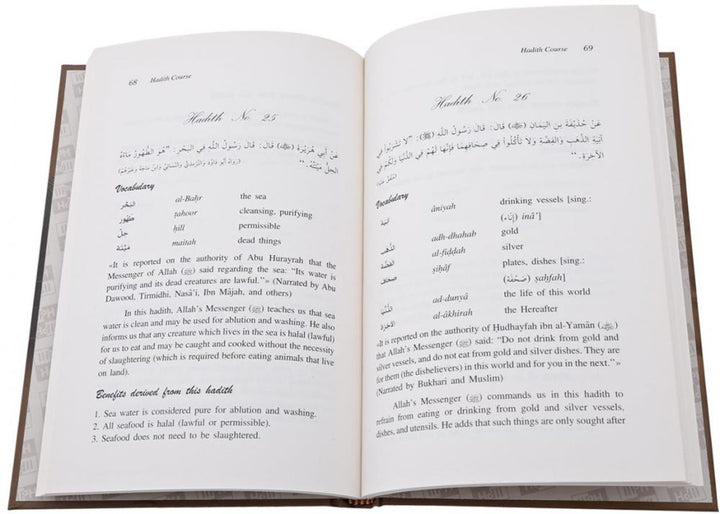 68 Hadith Course
Hadith No. 25
عَنْ أَبِي هُرَيْرَةَ (ﷺ) قَالَ: قَالَ رَسُولُ اللَّهِ فِي البَحْرِ: "هُوَ الطَّهُورُ مَاءُهُ
الحِلُّ مَيْتَتُهُ." (رَوَاهُ أَبُو دَاوُدَ وَالتِّرْمِذِيُّ وَالنَّسَائِيُّ وَابْنُ مَاجَهْ وَغَيْرُهُمْ)
Vocabulary
البَحْر al-Baḥr the sea
طَهُور ṭahoor cleansing, purifying
حِلّ ḥill permissible
مَيْتَة maitah dead things
«It is reported on the authority of Abu Hurayrah that the
Messenger of Allah (ﷺ) said regarding the sea: "Its water is
purifying and its dead creatures are lawful."» (Narrated by Abu
Dawood, Tirmidhi, Nasâ'i, Ibn Mâjah, and others)
In this hadith, Allah's Messenger (ﷺ) teaches us that sea
water is clean and may be used for ablution and washing. He also
informs us that any creature which lives in the sea is halal (lawful)
for us to eat and may be caught and cooked without the necessity
of slaughtering (which is required before eating animals that live
on land).
Benefits derived from this hadith
1. Sea water is considered pure for ablution and washing.
2. All seafood is halal (lawful or permissible).
3. Seafood does not need to be slaughtered.
Hadith Course 69
Hadith No. 26
عَنْ حُذَيْفَةَ بْنِ اليَمَانِ (ﷺ) قَالَ: قَالَ رَسُولُ اللَّهِ (ﷺ): "لَا تَشْرَبُوا فِي
آنِيَةِ الذَّهَبِ وَالفِضَّةِ وَلَا تَأْكُلُوا فِي صِحَافِهِمَا فَإِنَّهَا لَهُمْ فِي الدُّنْيَا وَلَكُمْ فِي
الآخِرَةِ." (مُتَّفَقٌ عَلَيْهِ)
Vocabulary
آنِيَة âniyah drinking vessels [sing.:
(إِنَاء) inâ']
الذَّهَب adh-dhahab gold
الفِضَّة al-fiḍḍah silver
صِحَاف ṣiḥâf plates, dishes [sing.:
(صَحْفَة) ṣaḥfah]
الدُّنْيَا ad-dunyâ the life of this world
الآخِرَة al-âkhirah the Hereafter
«It is reported on the authority of Hudhayfah ibn al-Yamân (ﷺ)
that Allah's Messenger (ﷺ) said: "Do not drink from gold and
silver vessels, and do not eat from gold and silver dishes. They are
for them (the disbelievers) in this world and for you in the next."»
(Narrated by Bukhari and Muslim)
Allah's Messenger (ﷺ) commands us in this hadith to
refrain from eating or drinking from gold and silver vessels,
dishes, and utensils. He adds that such things are only sought after